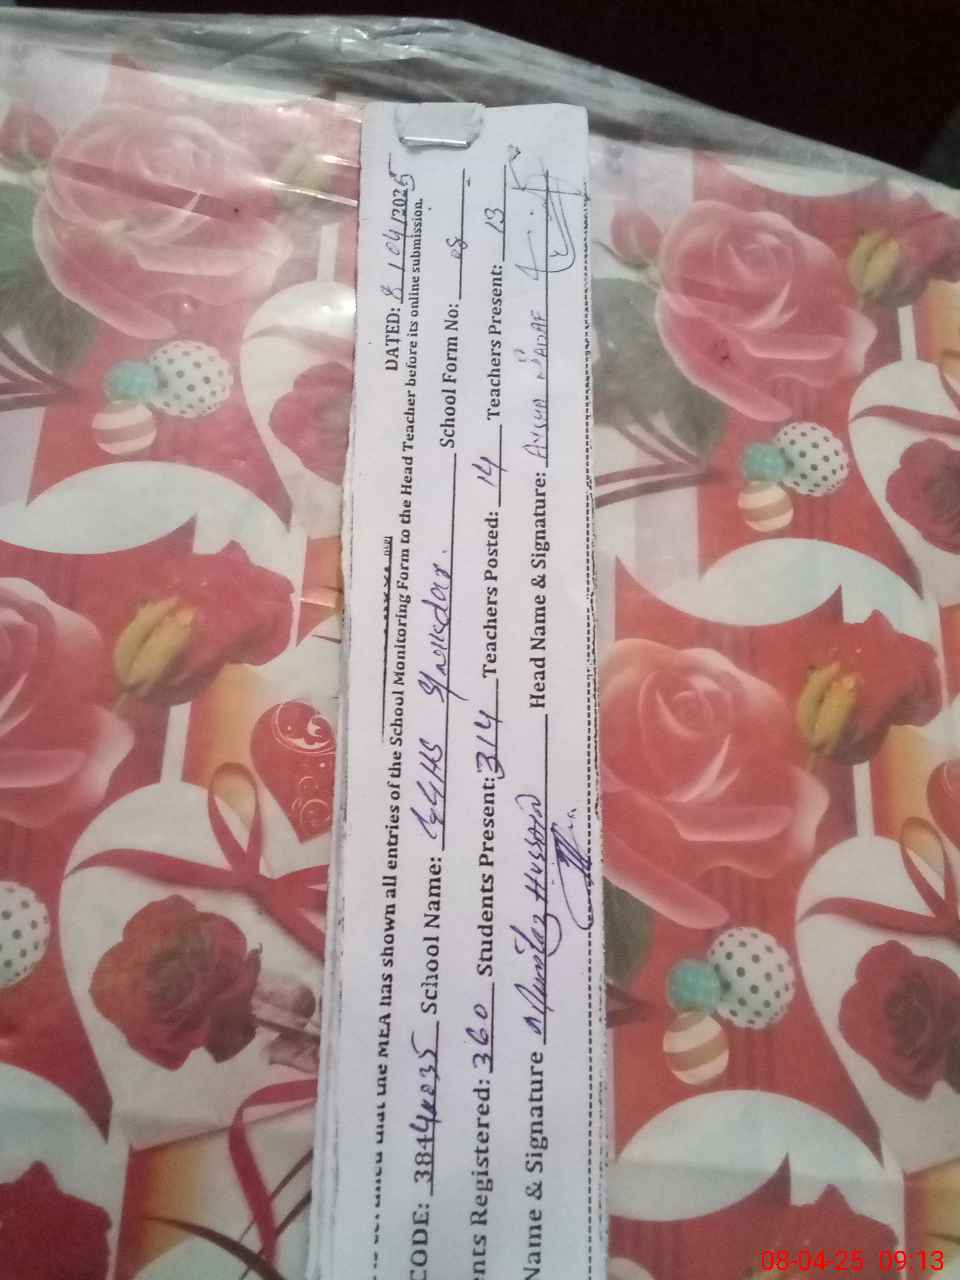 DATED: 8/04/2025
that the MEA has shown all entries of the School Monitoring Form to the Head Teacher before its online submission.
CODE: School Name: GGHS School Form No: 08
nts Registered: 360 Students Present: 314 Teachers Posted: 14 Teachers Present: 13
Name & Signature Mumtaz Hussain Head Name & Signature:
08-04-25 09:13